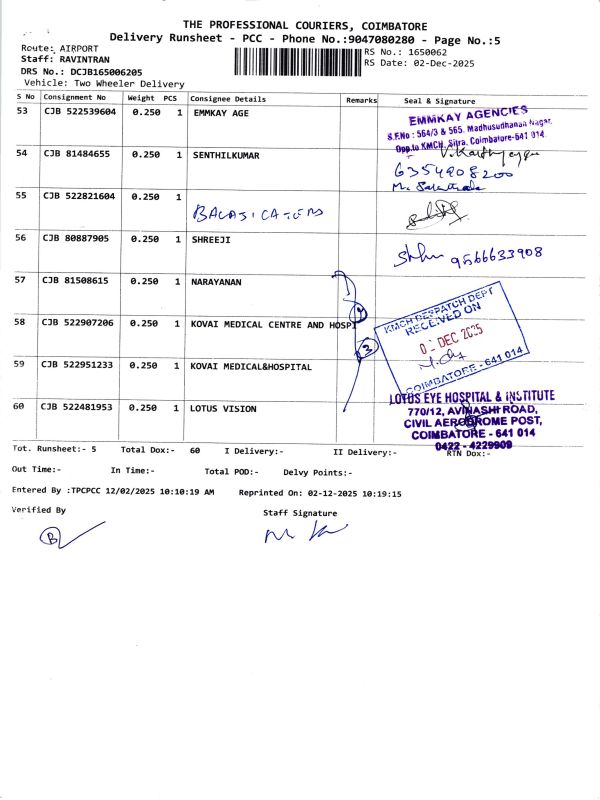 THE PROFESSIONAL COURIERS, COIMBATORE
Delivery Runsheet - PCC - Phone No.:9047080280 - Page No.:5
Route: AIRPORT
Staff: RAVINTRAN
DRS No.: DCJB165006205
Vehicle: Two Wheeler Delivery
RS No.: 1650062
RS Date: 02-Dec-2025
S No Consignment No Weight PCS Consignee Details Remarks Seal & Signature
53 CJB 522539604 0.250 1 EMMKAY AGE
EMMKAY AGENCIES
S.F.No : 564/3 & 565, Madhusudhanan Nagar,
Opp.to KMCH, Sitra, Coimbatore-641 014.
54 CJB 81484655 0.250 1 SENTHILKUMAR
6354908200
55 CJB 522821604 0.250 1
56 CJB 80887905 0.250 1 SHREEJI
9566633908
57 CJB 81508615 0.250 1 NARAYANAN
58 CJB 522907206 0.250 1 KOVAI MEDICAL CENTRE AND HOSPI
KMCH DESPATCH DEPT
RECEIVED ON
DEC 2025
COIMBATORE - 641 014
59 CJB 522951233 0.250 1 KOVAI MEDICAL&HOSPITAL
3
60 CJB 522481953 0.250 1 LOTUS VISION
LOTUS EYE HOSPITAL & INSTITUTE
770/12, AVINASHI ROAD,
CIVIL AERODROME POST,
COIMBATORE - 641 014
0422 - 4229909
Tot. Runsheet:- 5 Total Dox:- 60 I Delivery:- II Delivery:- RTN Dox:-
Out Time:- In Time:- Total POD:- Delvy Points:-
Entered By :TPCPCC 12/02/2025 10:10:19 AM Reprinted On: 02-12-2025 10:19:15
Verified By Staff Signature
B